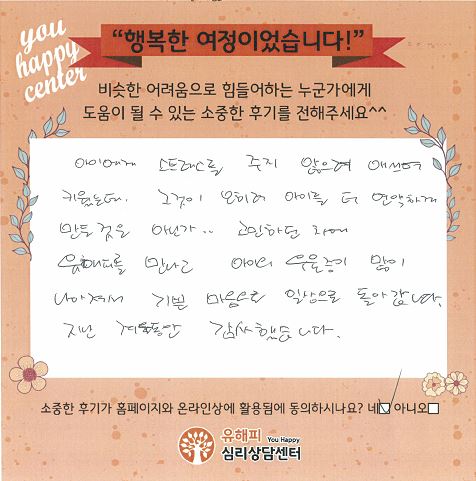 you
happy
center
“행복한 여정이었습니다!”
비슷한 어려움으로 힘들어하는 누군가에게
도움이 될 수 있는 소중한 후기를 전해주세요^^
아이에게 스트레스를 주지 않으려 애쓰며
키웠는데. 그것이 오히려 아이를 더 연약하게
만든 것은 아닌가.. 고민하던 차에
유해피를 만나고 아이의 우울증이 많이
나아져서 기쁜 마음으로 일상으로 돌아갑니다.
지난 겨울동안 감사했습니다.
소중한 후기가 홈페이지와 온라인상에 활용됨에 동의하시나요? 네☑ 아니오☐
유해피 You Happy
심리상담센터